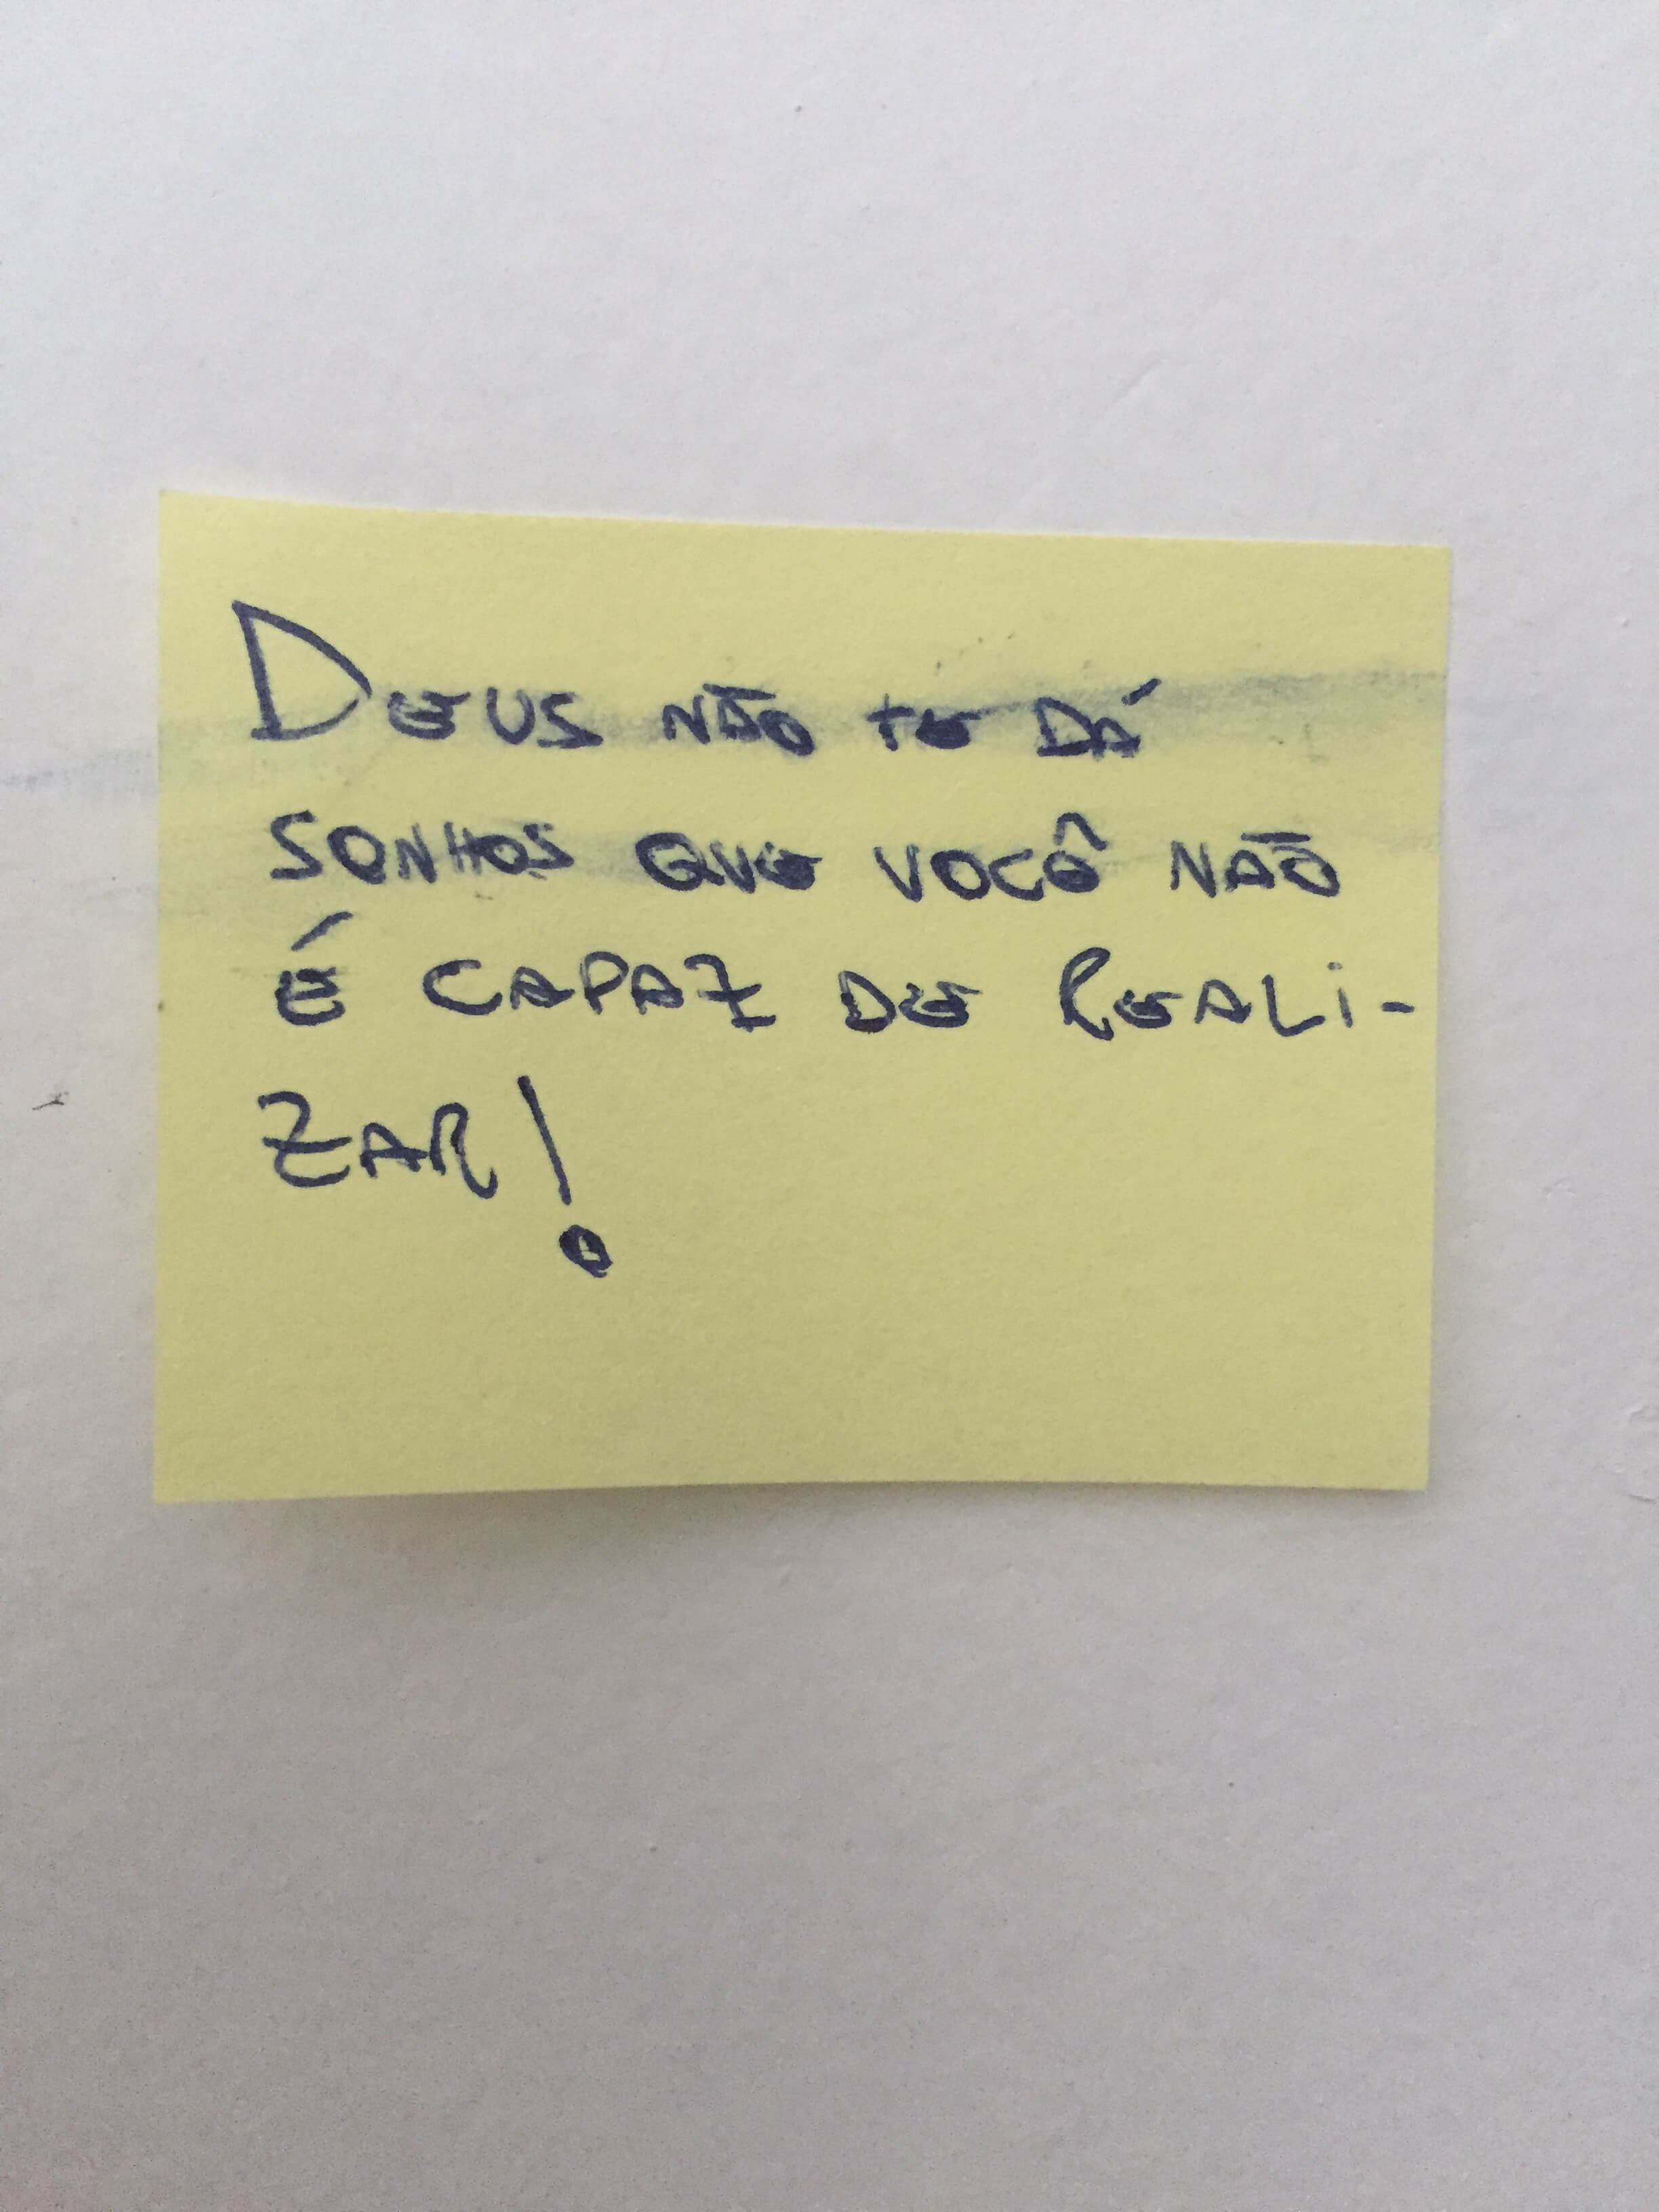 DEUS NÃO TE DÁ
SONHOS QUE VOCÊ NÃO
É CAPAZ DE REALI-
ZAR!